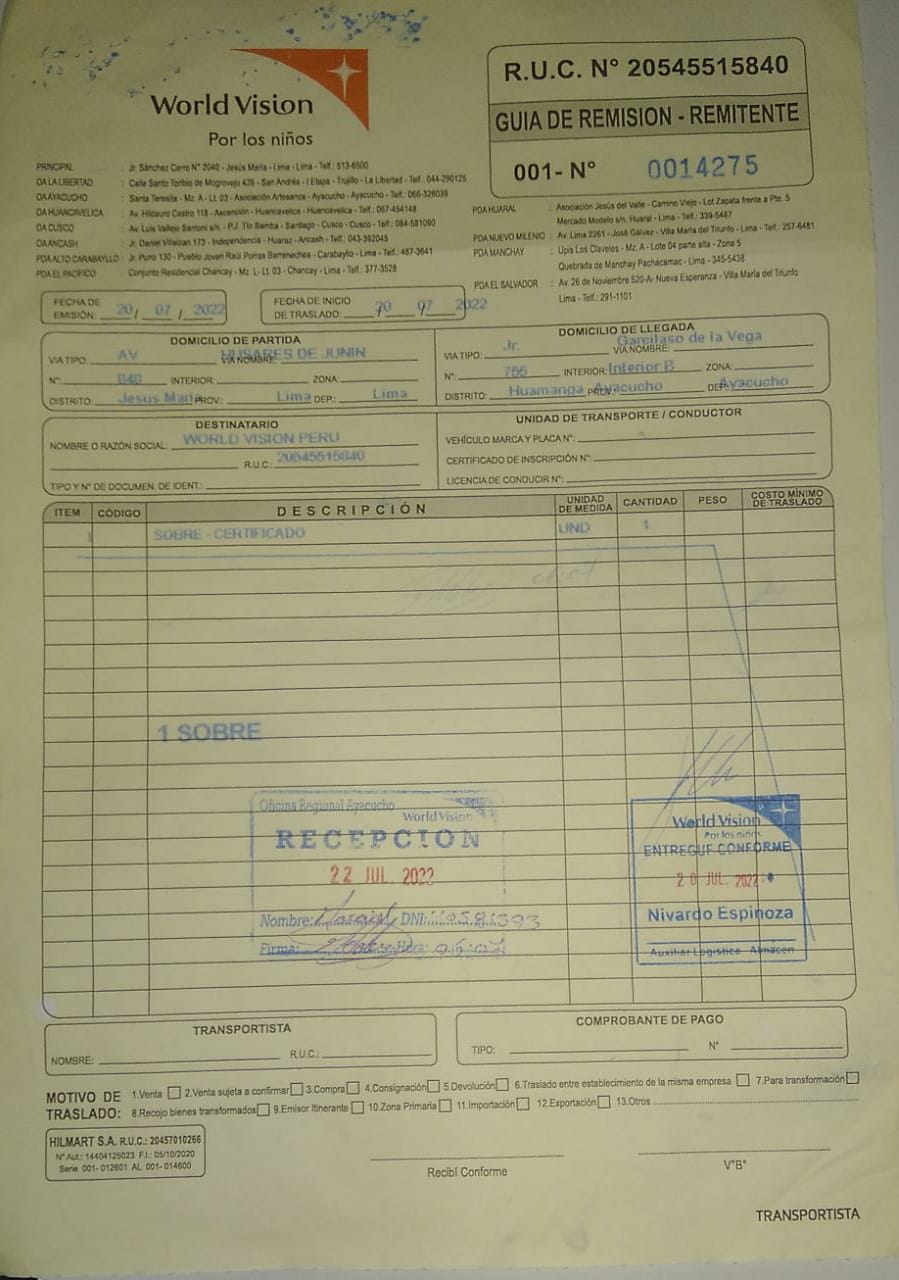 World Vision
Por los niños
R.U.C. N° 20545515840
GUIA DE REMISION - REMITENTE
001- N° 0014275
PRINCIPAL : Jr. Sánchez Cerro N° 2040 - Jesús María - Lima - Lima - Telf.: 513-6500
OA LA LIBERTAD : Calle Santo Toribio de Mogrovejo 426 - San Andrés - I Etapa - Trujillo - La Libertad - Telf.: 044-290125
OA AYACUCHO : Santa Teresita - Mz. A - Lt. 03 - Asociación Artesanos - Ayacucho - Ayacucho - Telf.: 066-326039
OA HUANCAVELICA : Av. Hildauro Castro 118 - Ascención - Huancavelica - Huancavelica - Telf.: 067-454148
OA CUSCO : Av. Luis Vallejo Santoni s/n. - P.J. Tío Bamba - Santiago - Cusco - Cusco - Telf.: 084-581090
OA ANCASH : Jr. Daniel Villaizan 173 - Independencia - Huaraz - Ancash - Telf.: 043-392045
PDA ALTO CARABAYLLO : Jr. Puno 130 - Pueblo Joven Raúl Porras Barrenechea - Carabayllo - Lima - Telf.: 487-3641
PDA EL PACÍFICO : Conjunto Residencial Chancay - Mz. L - Lt. 03 - Chancay - Lima - Telf.: 377-3528
PDA HUARAL : Asociación Jesús del Valle - Camino Viejo - Lot Zapata frente a Pte. 5
Mercado Modelo s/n. Huaral - Lima - Telf.: 339-5487
PDA NUEVO MILENIO : Av. Lima 2261 - José Gálvez - Villa María del Triunfo - Lima - Telf.: 257-6481
PDA MANCHAY : Upis Los Claveles - Mz. A - Lote 04 parte alta - Zona 5
Quebrada de Manchay Pachacamac - Lima - 345-5438
PDA EL SALVADOR : Av. 26 de Noviembre 520-A - Nueva Esperanza - Villa María del Triunfo
Lima - Telf.: 291-1101
FECHA DE
EMISIÓN: 20 / 07 / 2022
FECHA DE INICIO
DE TRASLADO: 20 / 07 2022
DOMICILIO DE PARTIDA
VIA TIPO AV VIA NOMBRE: HUSARES DE JUNIN
N°: 848 INTERIOR: ZONA:
DISTRITO: Jesus Mari PROV.: Lima DEP.: Lima
DOMICILIO DE LLEGADA
VIA TIPO: Jr. VIA NOMBRE: Garcilaso de la Vega
N°: 766 INTERIOR: Interior B ZONA:
DISTRITO: Huamanga PROV.: Ayacucho DEP.: Ayacucho
DESTINATARIO
NOMBRE O RAZÓN SOCIAL: WORLD VISION PERU
R.U.C.: 20545515840
TIPO Y N° DE DOCUMEN. DE IDENT.:
UNIDAD DE TRANSPORTE / CONDUCTOR
VEHÍCULO MARCA Y PLACA N°:
CERTIFICADO DE INSCRIPCIÓN N°:
LICENCIA DE CONDUCIR N°:
ITEM CÓDIGO DESCRIPCIÓN UNIDAD DE MEDIDA CANTIDAD PESO COSTO MÍNIMO DE TRASLADO
1 SOBRE - CERTIFICADO UND 1
1 SOBRE
Oficina Regional Ayacucho
World Vision
RECEPCION
22 JUL. 2022
Nombre: DNI:
Firma: Hora:
World Vision
Por los niños
ENTREGUE CONFORME
20 JUL. 2022
Nivardo Espinoza
Auxiliar Logístico - Almacen
TRANSPORTISTA
NOMBRE: R.U.C.:
COMPROBANTE DE PAGO
TIPO: N°
MOTIVO DE TRASLADO:
1.Venta 2.Venta sujeta a confirmar 3.Compra 4.Consignación 5.Devolución 6.Traslado entre establecimiento de la misma empresa 7.Para transformación
8.Recojo bienes transformados 9.Emisor Itinerante 10.Zona Primaria 11.Importación 12.Exportación 13.Otros
HILMART S.A. R.U.C.: 20457010266
N° Aut.: 14404125023 F.I.: 05/10/2020
Serie 001- 012601 AL 001- 014600
Recibí Conforme
V°B°
TRANSPORTISTA